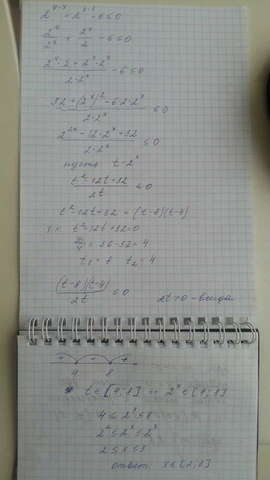 2^(4-x) + 2^(x-1) - 6 ≤ 0
2^4/2^x + 2^x/2 - 6 ≤ 0
(2^4·2 + 2^x·2^x)/(2·2^x) - 6 ≤ 0
(32 + (2^x)^2 - 6·2·2^x)/(2·2^x) ≤ 0
(2^2x - 12·2^x + 32)/(2·2^x) ≤ 0
пусть t = 2^x
(t^2 - 12t + 32)/2t ≤ 0
t^2 - 12t + 32 = (t-8)(t-4)
t^2 - 12t + 32 = 0
D/4 = 36 - 32 = 4
t_2 = 4
(t-8)(t-4)/2t ≤ 0 2t > 0 - всегда
+ - +
4 8
t ∈ [4,8] 2^x ∈ [4,8]
4 ≤ 2^x ≤ 8
2^2 ≤ 2^x ≤ 2^3
2 ≤ x ≤ 3
ответ: x ∈ [2,3]